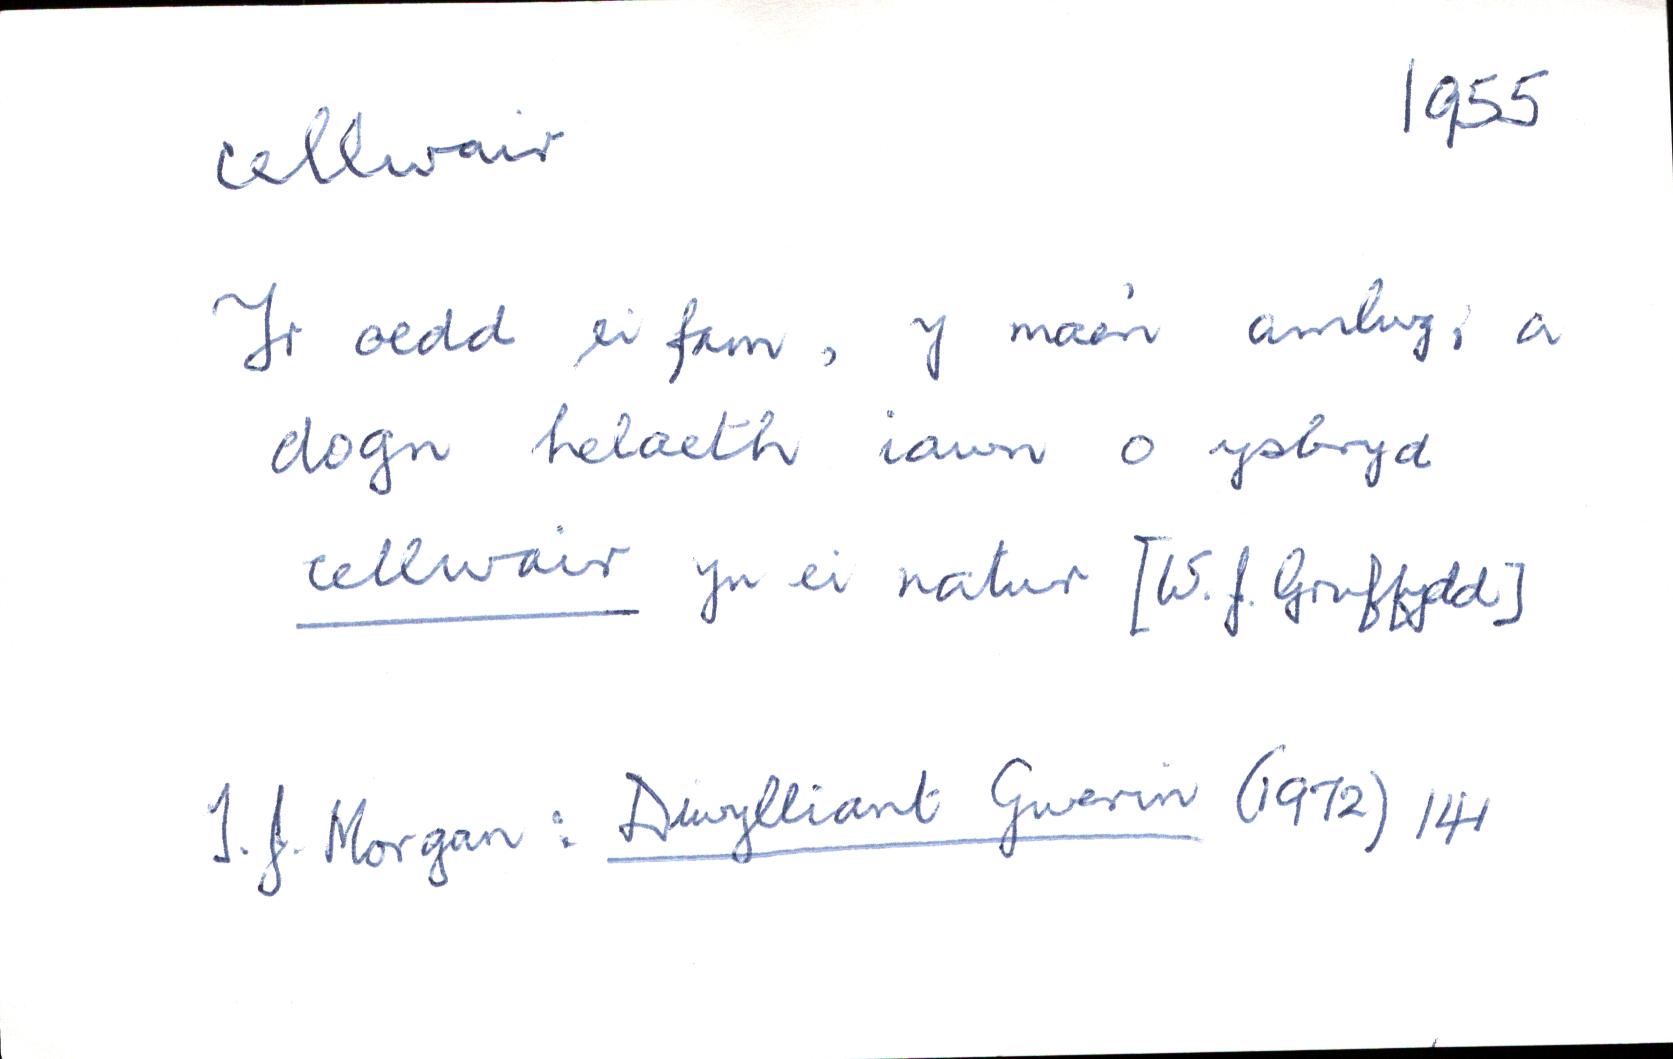 cellwair 1955
Yr oedd ei fam, y mae'n amlwg, a
dogn helaeth iawn o ysbryd
cellwair yn ei natur [W. J. Gruffydd]
T. J. Morgan: Diwylliant Gwerin (1972) 141